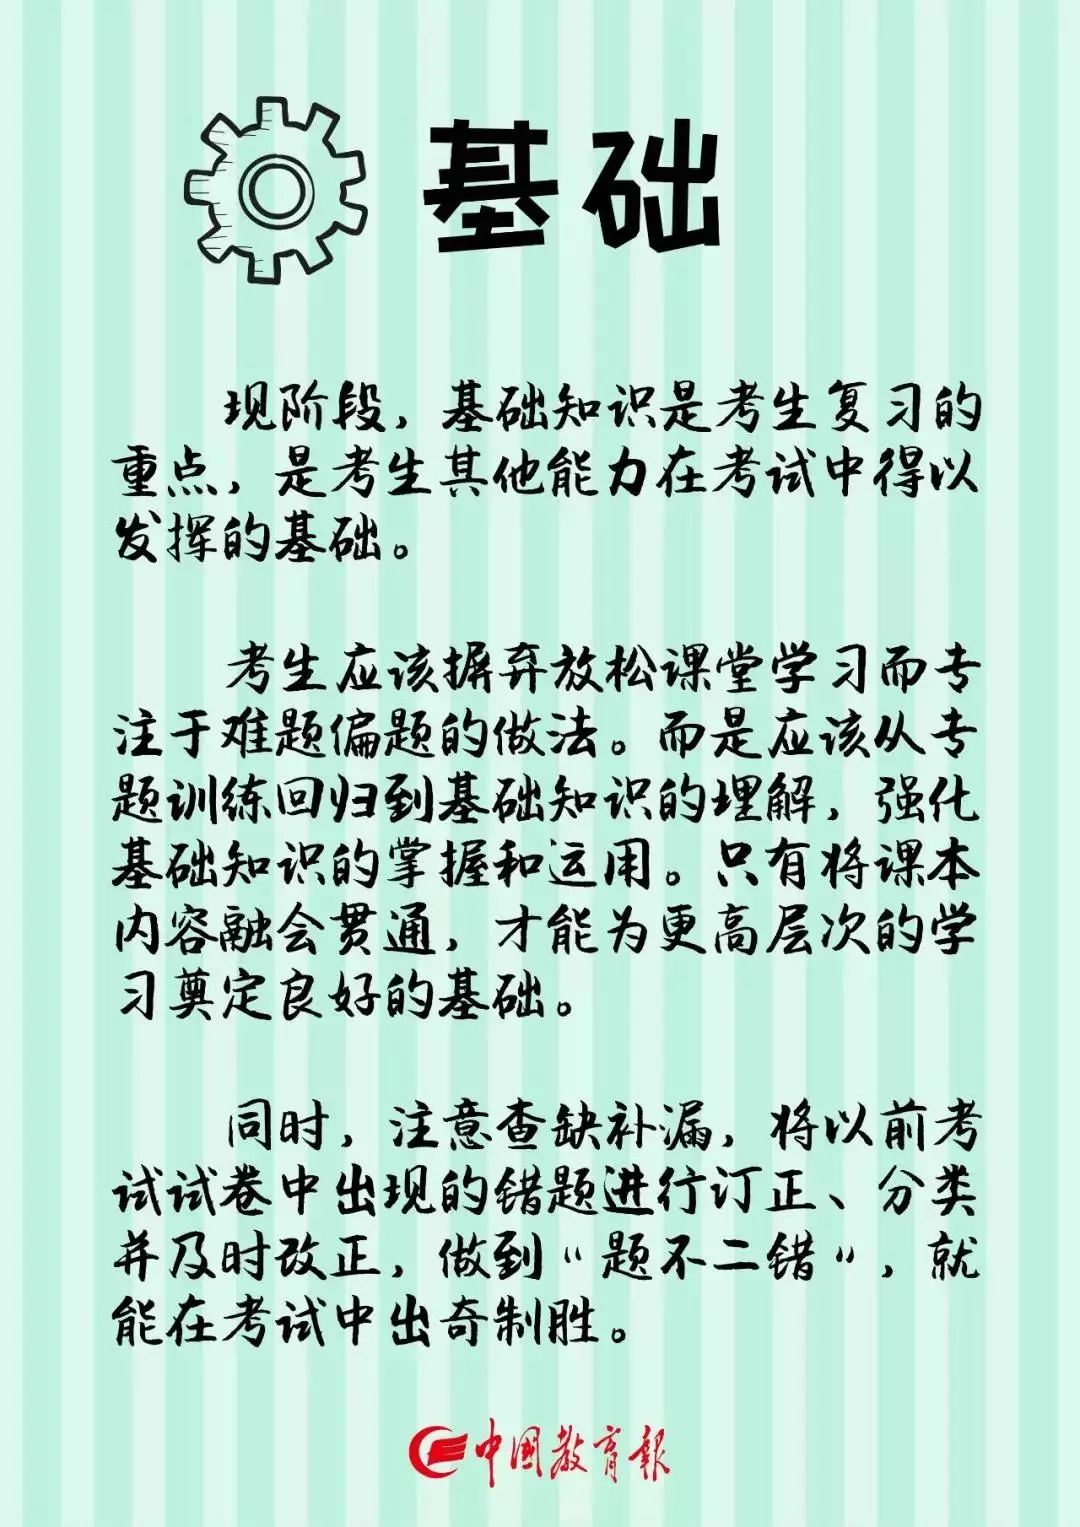 基础
现阶段，基础知识是考生复习的
重点，是考生其他能力在考试中得以
发挥的基础。
考生应该摒弃放松课堂学习而专
注于难题偏题的做法。而是应该从专
题训练回归到基础知识的理解，强化
基础知识的掌握和运用。只有将课本
内容融会贯通，才能为更高层次的学
习奠定良好的基础。
同时，注意查缺补漏，将以前考
试试卷中出现的错题进行订正、分类
并及时改正，做到“题不二错”，就
能在考试中出奇制胜。
中国教育報